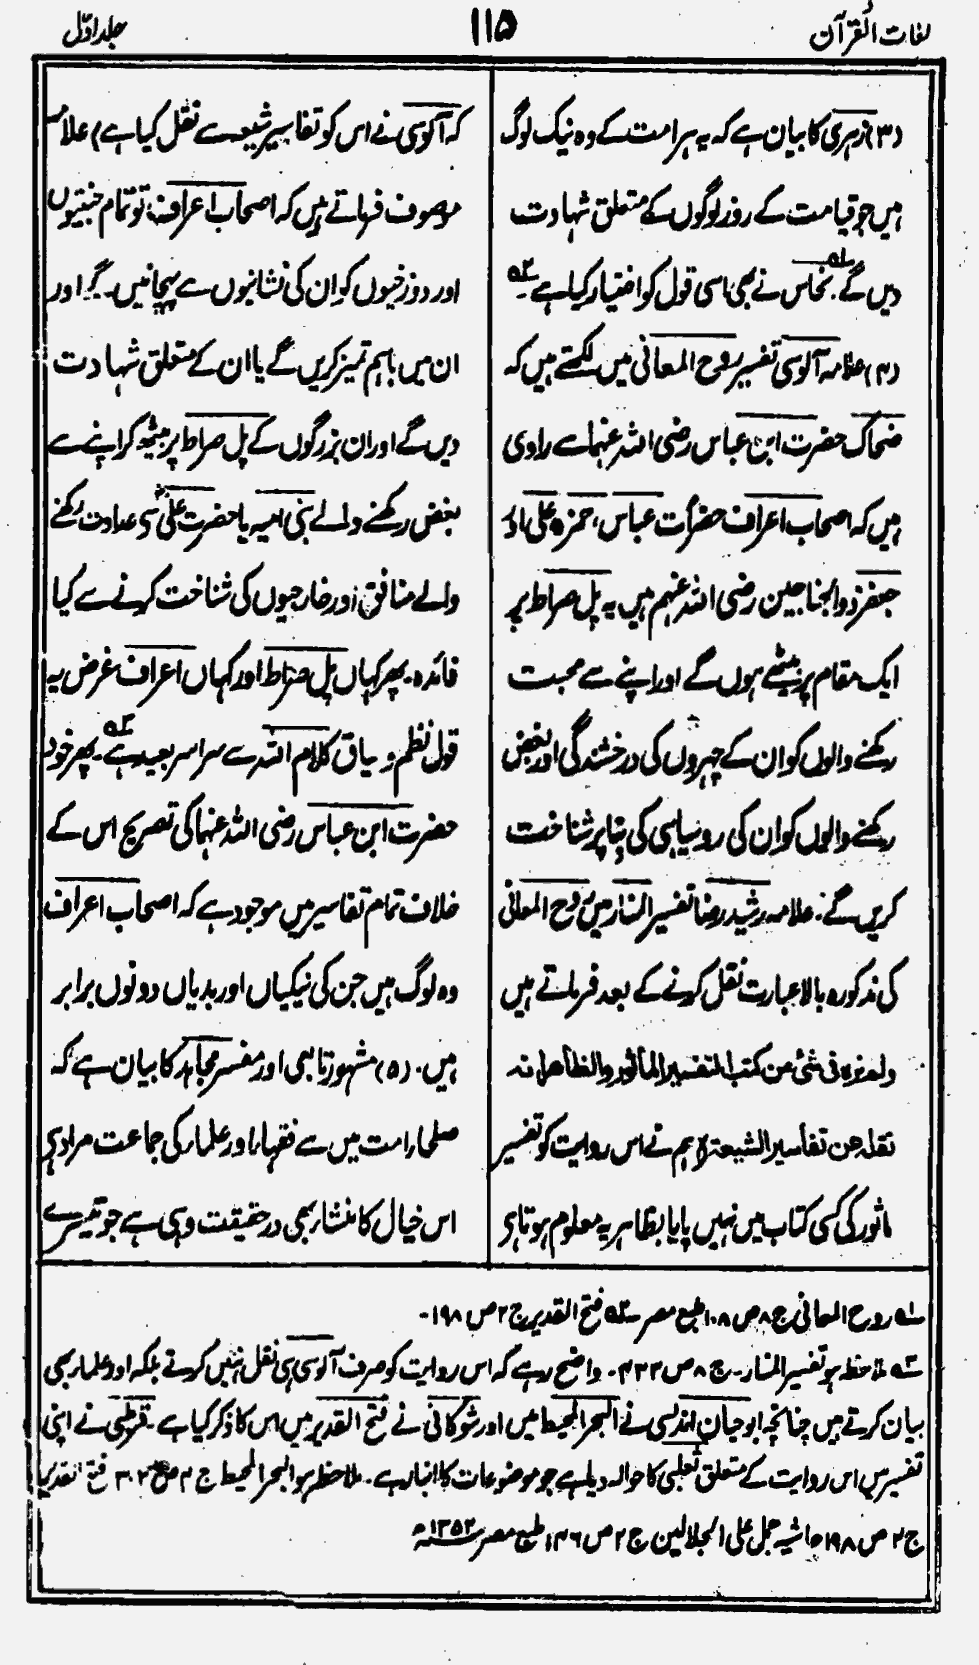 لغات القرآن
۱۱۵
جلد اوّل
(۳) زہری کا بیان ہے کہ یہ ہر امت کے وہ نیک لوگ
ہیں جو قیامت کے روز لوگوں کے متعلق شہادت
دیں گے۔ نحاس نے بھی اسی قول کو اختیار کیا ہے۔
(۴) علامہ آلوسی تفسیر روح المعانی میں لکھتے ہیں کہ
ضحاک حضرت ابن عباس رضی اللہ عنہما سے راوی
ہیں کہ اصحاب اعراف حضرات عباس، حمزہ علی اور
جعفر ذو الجناحین رضی اللہ عنہم ہیں یہ پل صراط پر
ایک مقام پر بیٹھے ہوں گے اور اپنے سے محبت
رکھنے والوں کو ان کے چہروں کی درخشندگی اور بغض
رکھنے والوں کو ان کی رو سیاہی کی بنا پر شناخت
کریں گے۔ علامہ رشید رضا تفسیر المنار میں روح المعانی
کی مذکورہ بالا عبارت نقل کرنے کے بعد فرماتے ہیں
ولم نره فی شئ من کتب التفسیر المأثور والظاهر انه
نقله عن تفاسیر الشیعة (ہم نے اس روایت کو تفسیر
ماثور کی کسی کتاب میں نہیں پایا بظاہر یہ معلوم ہوتا ہی
کہ آلوسی نے اس کو تفاسیر شیعہ سے نقل کیا ہے) علامہ
موصوف فرماتے ہیں کہ اصحاب اعراف، تو تمام جنتیوں
اور دوزخیوں کو ان کی نشانیوں سے پہچانیں گے اور
ان میں باہم تمیز کریں گے یا ان کے متعلق شہادت
دیں گے اور ان بزرگوں کے پل صراط پر بیٹھ کر اپنے سے
بغض رکھنے والے بنی امیہ یا حضرت علی سی عداوت رکھنے
والے منافق اور خارجیوں کی شناخت کرنے سے کیا
فائدہ۔ پھر کہاں پل صراط اور کہاں اعراف غرض یہ
قول نظم و سیاق کلام اللہ سے سراسر بعید ہے۔ پھر خود
حضرت ابن عباس رضی اللہ عنہما کی تصریح اس کے
خلاف تمام تفاسیر میں موجود ہے کہ اصحاب اعراف
وہ لوگ ہیں جن کی نیکیاں اور بدیاں دونوں برابر
ہیں۔ (۵) مشہور تابعی اور مفسر مجاہد کا بیان ہے کہ
صلحاء امت میں سے فقہاء اور علماء کی جماعت مراد ہی
اس خیال کا منشاء بھی درحقیقت وہی ہے جو تیسرے
۱ روح المعانی ج ۸ ص ۱۰۸ طبع مصر ۲ فتح القدیر ج ۲ ص ۱۹۸۔
۳ ملاحظہ ہو تفسیر المنار۔ ج ۸ ص ۴۳۳۔ واضح رہے کہ اس روایت کو صرف آلوسی ہی نقل نہیں کرتے بلکہ اور علماء بھی
بیان کرتے ہیں چنانچہ ابو حیان اندلسی نے البحر المحیط میں اور شوکانی نے فتح القدیر میں اس کا ذکر کیا ہے۔ قرطبی نے اپنی
تفسیر میں اس روایت کے متعلق ثعلبی کا حوالہ دیا ہے جو موضوعات کا انبار ہے۔ ملاحظہ ہو البحر المحیط ج ۴ ص ۳۰۲ فتح القدیر
ج ۲ ص ۱۹۸ حاشیہ جمل علی الجلالین ج ۲ ص ۱۴۶ طبع مصر ۱۳۵۲ھ